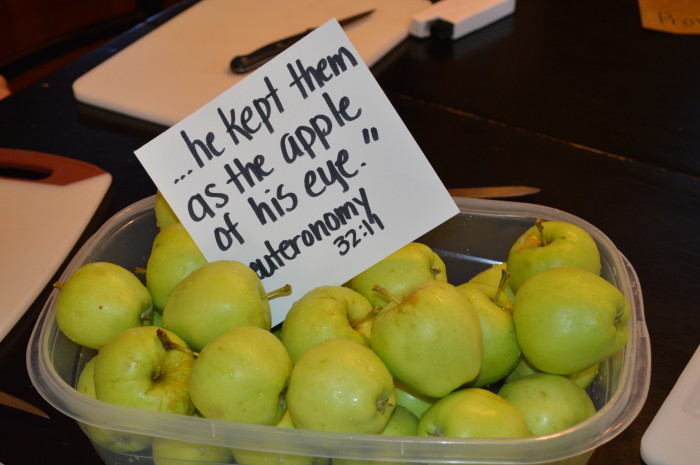 ...he kept them
as the apple
of his eye."
euteronomy